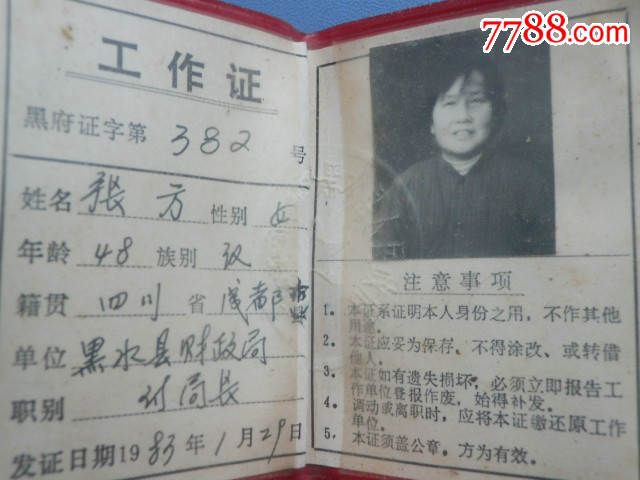 7788.com
工作证
黑府证字第382号
姓名 張方 性别 女
年龄 48 族别 汉
籍贯 四川 省 成都市
单位 黑水县财政局
职别 付局长
发证日期1983年1月29日
注意事项
1. 本证系证明本人身份之用,不作其他
用途。
2. 本证应妥为保存,不得涂改、或转借
他人。
3. 本证如有遗失损坏,必须立即报告工
作单位登报作废,始得补发。
4. 调动或离职时,应将本证缴还原工作
单位。
5. 本证须盖公章。方为有效。